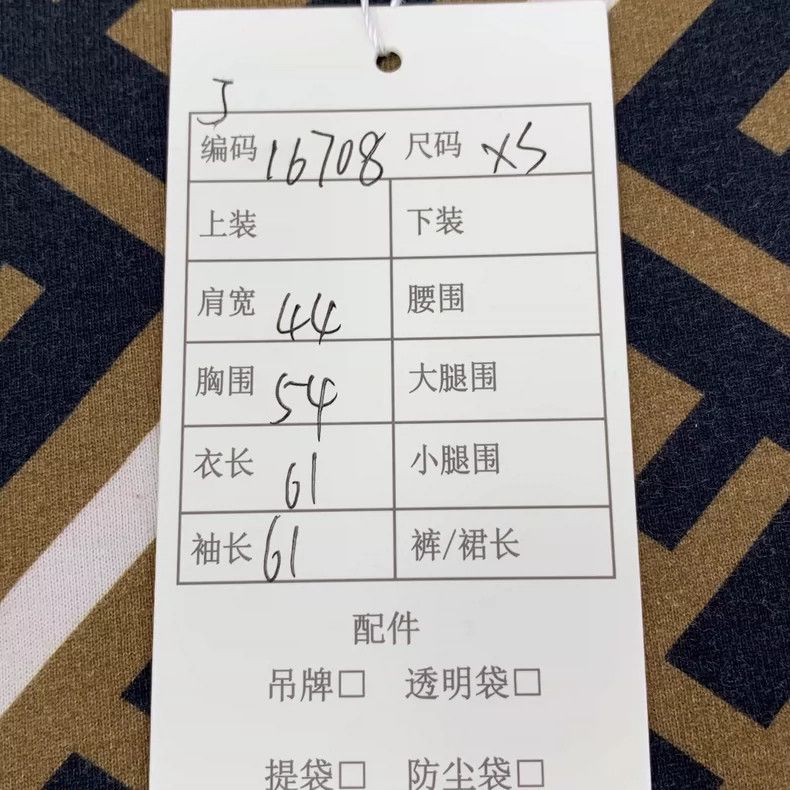 J
编码 16708 尺码 XS
上装 下装
肩宽 44 腰围
胸围 54 大腿围
衣长 61 小腿围
袖长 61 裤/裙长
配件
吊牌□ 透明袋□
提袋□ 防尘袋□